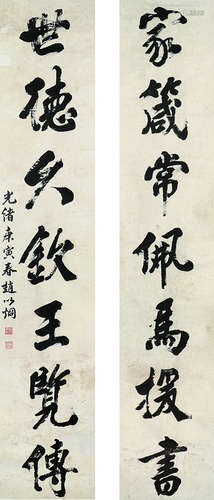 家箴常佩馬援書
世德久欽王覽傳
光緒庚寅春趙以炯